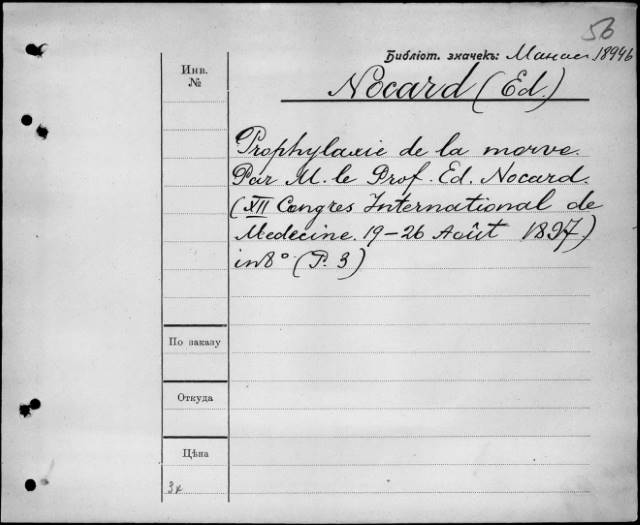 56
Библіот. значекъ: Манас 1894б
Инв.
№
Nocard (Ed.)
Prophylaxie de la morve.
Par M. le Prof. Ed. Nocard.
(XII Congres International de
Medecine. 19-26 Août 1897)
in 8° (P. 3)
По заказу
Откуда
Цѣна